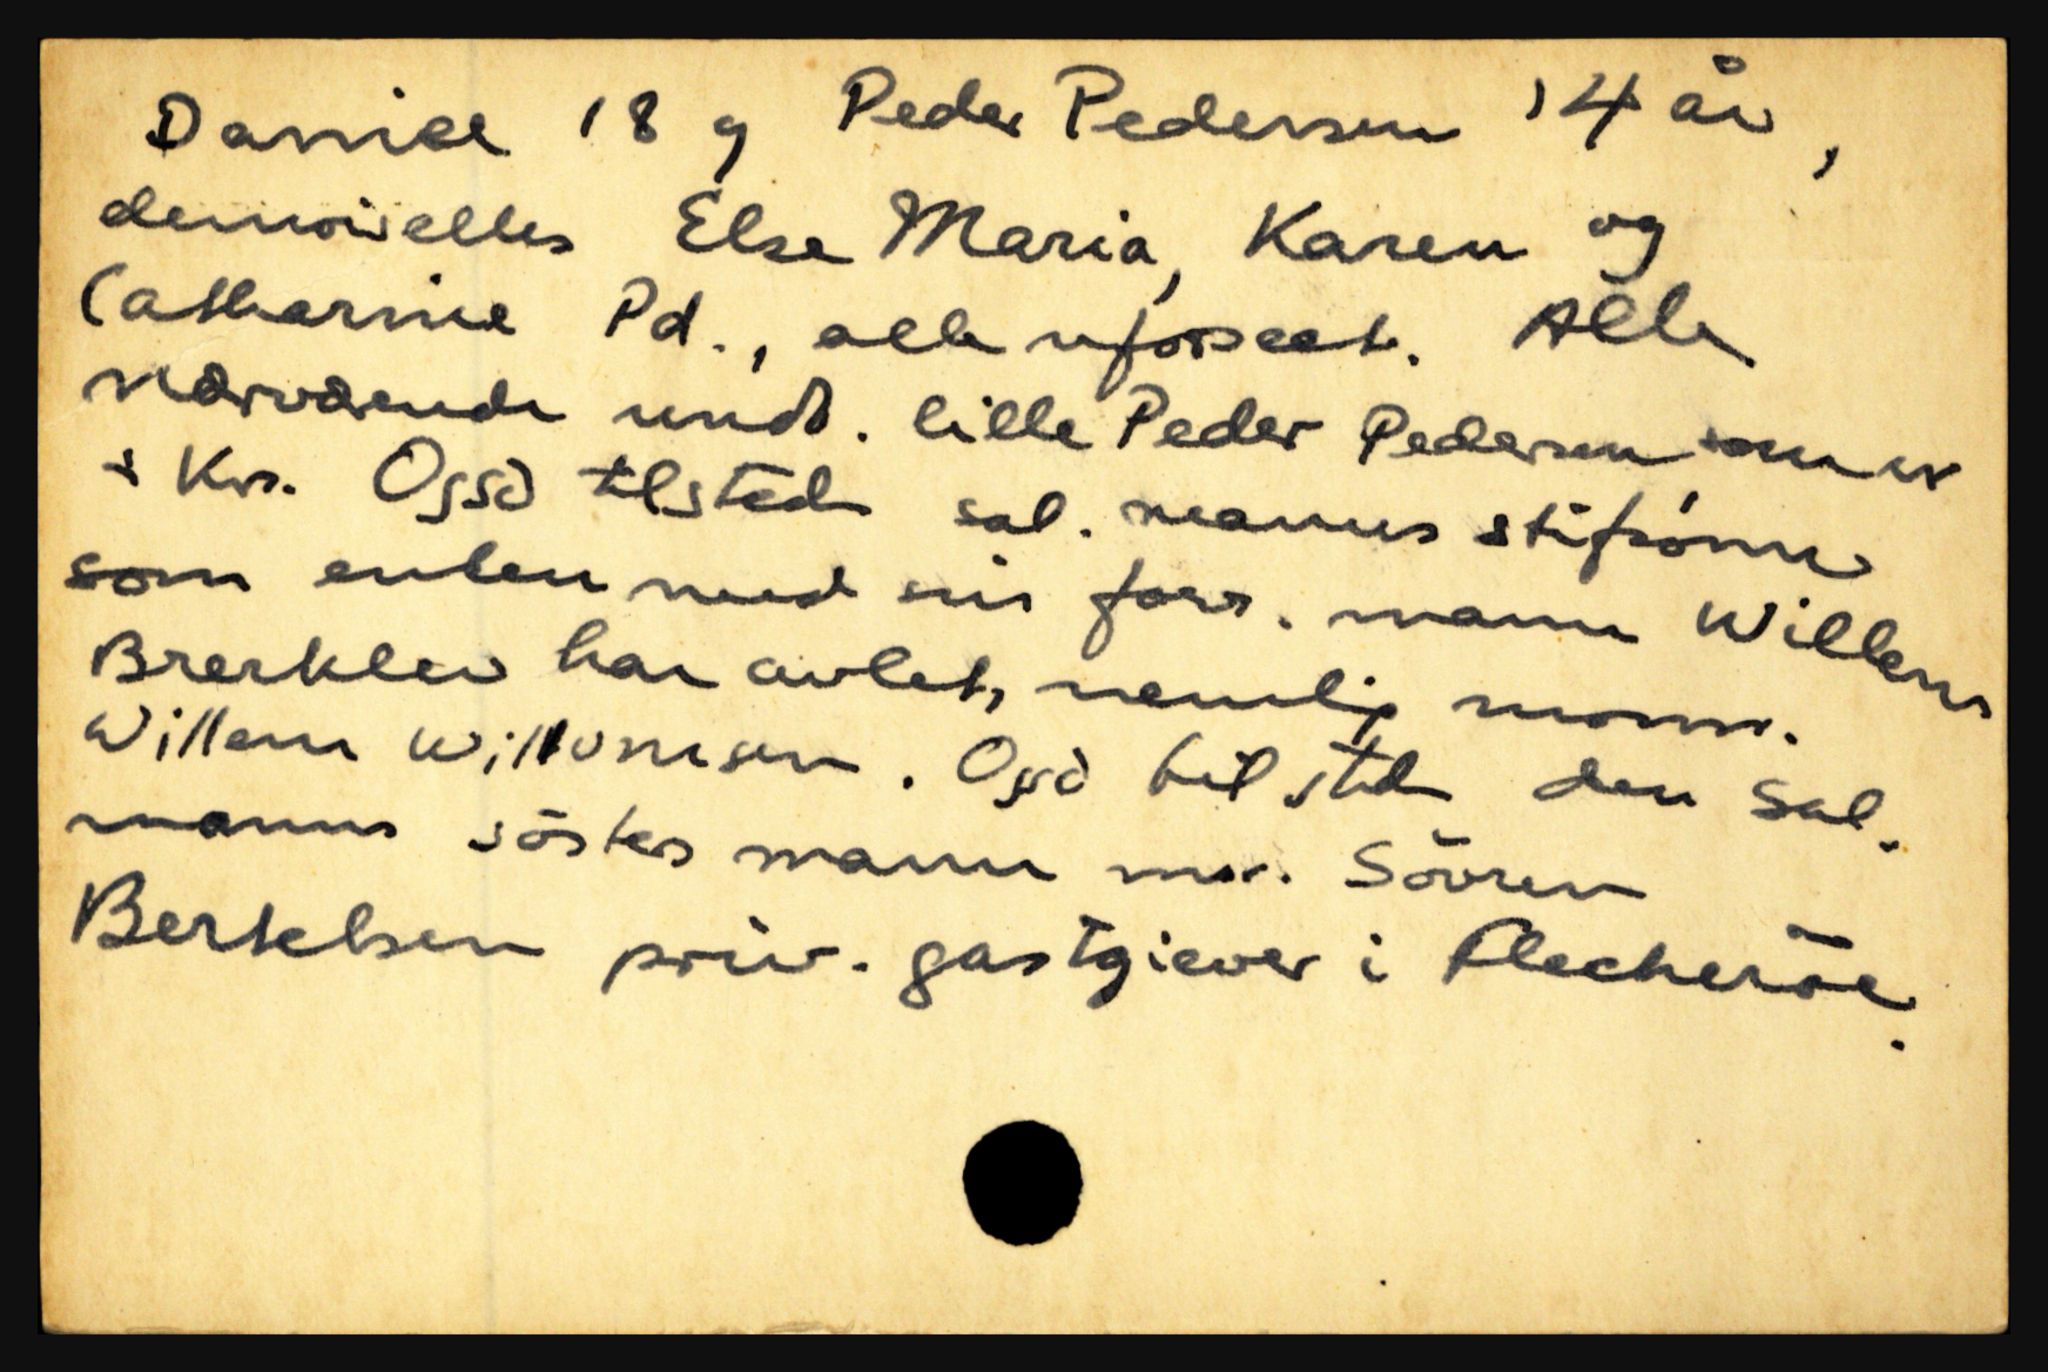 Daniel 18 g Peder Pedersen 14 år,
demoiselles Else Maria, Karen og
Catharine Pd., alle uforseet. Alle
nærværende undt. lille Peder Pedersen som er
i Krs. Også tilstede sal. manns stifsönn
som enken med sin forr. mann Willem
Brerklev har avlet, nemlig monsr.
Willem Willomsen. Også tilstede den sal.
manns sösters mann mr. Sövren
Bertelsen priv. gastgiever i Flecheröe.